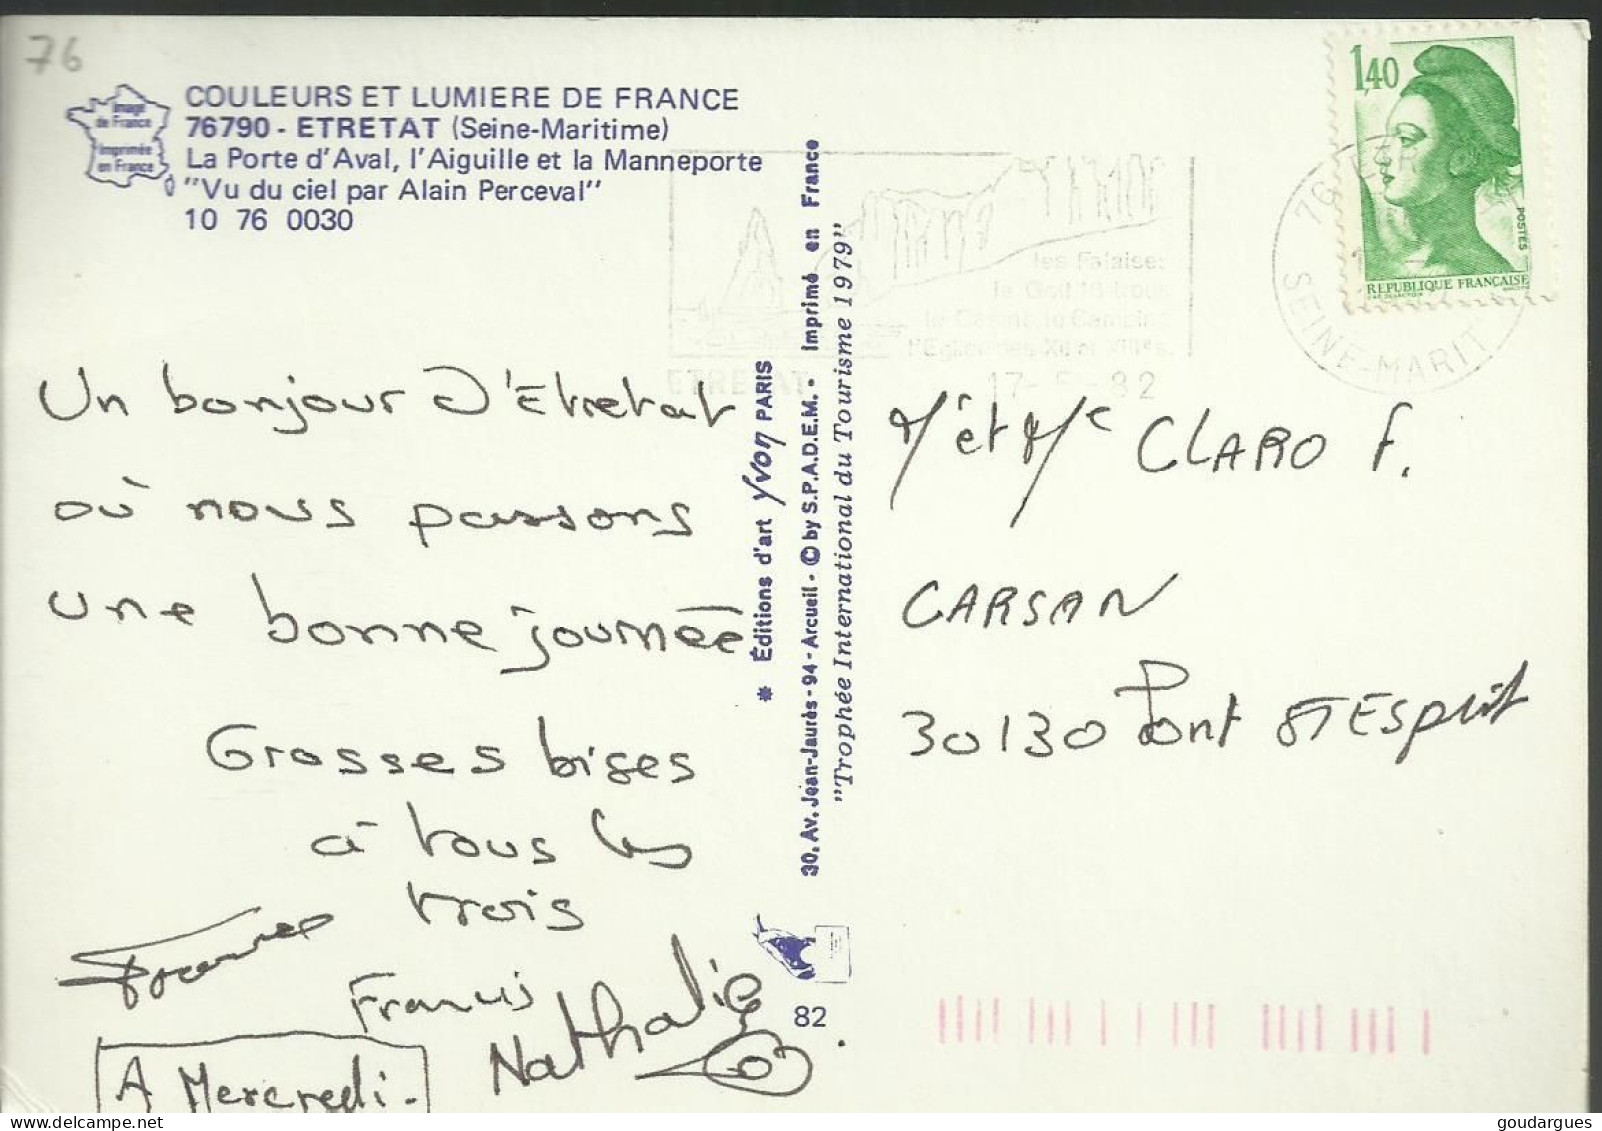 76
Image
de France
Imprimée
en France
COULEURS ET LUMIERE DE FRANCE
76790 - ETRETAT (Seine-Maritime)
La Porte d'Aval, l'Aiguille et la Manneporte
"Vu du ciel par Alain Perceval"
10 76 0030
1,40
POSTES
REPUBLIQUE FRANÇAISE
76
SEINE-MARIT
les Falaises
ETRETAT
82
Un bonjour d'Etretat
où nous passons
une bonne journée
Grosses bises
à tous les
trois
Francis
Nathalie
A Mercredi.
* Éditions d'art YVON PARIS
30, Av. Jean-Jaurès - 94 - Arcueil - © by S.P.A.D.E.M. - Imprimé en France
"Trophée International du Tourisme 1979"
82
Mr et Me CLARO F.
CARSAN
30130 Pont ST Esprit
goudargues